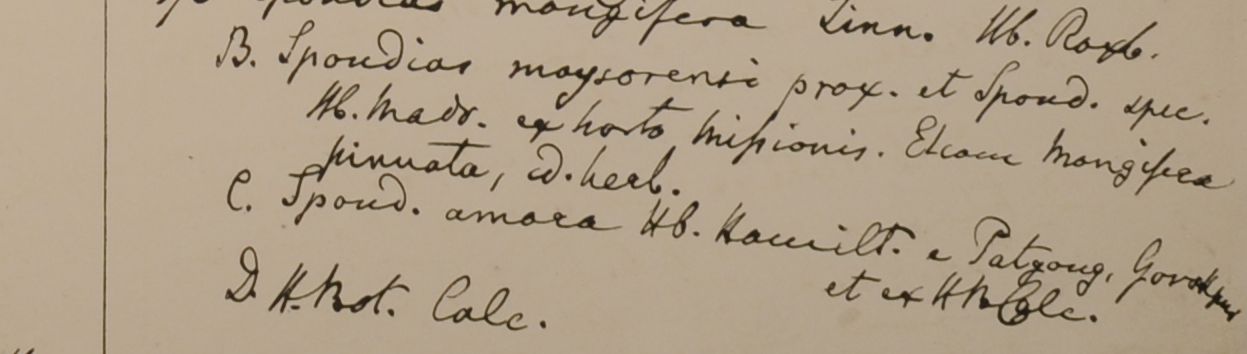 Spondias mangifera Linn. Hb. Roxb.
B. Spondias maysorensi prox. et Spond. spec.
Hb. Madr. ex horto Missionis. Etiam Mangifera
pinnata, ed. herb.
C. Spond. amara Hb. Hamilt. e Patgong, Gorokpur
et ex H B Calc.
D. H. Bot. Calc.